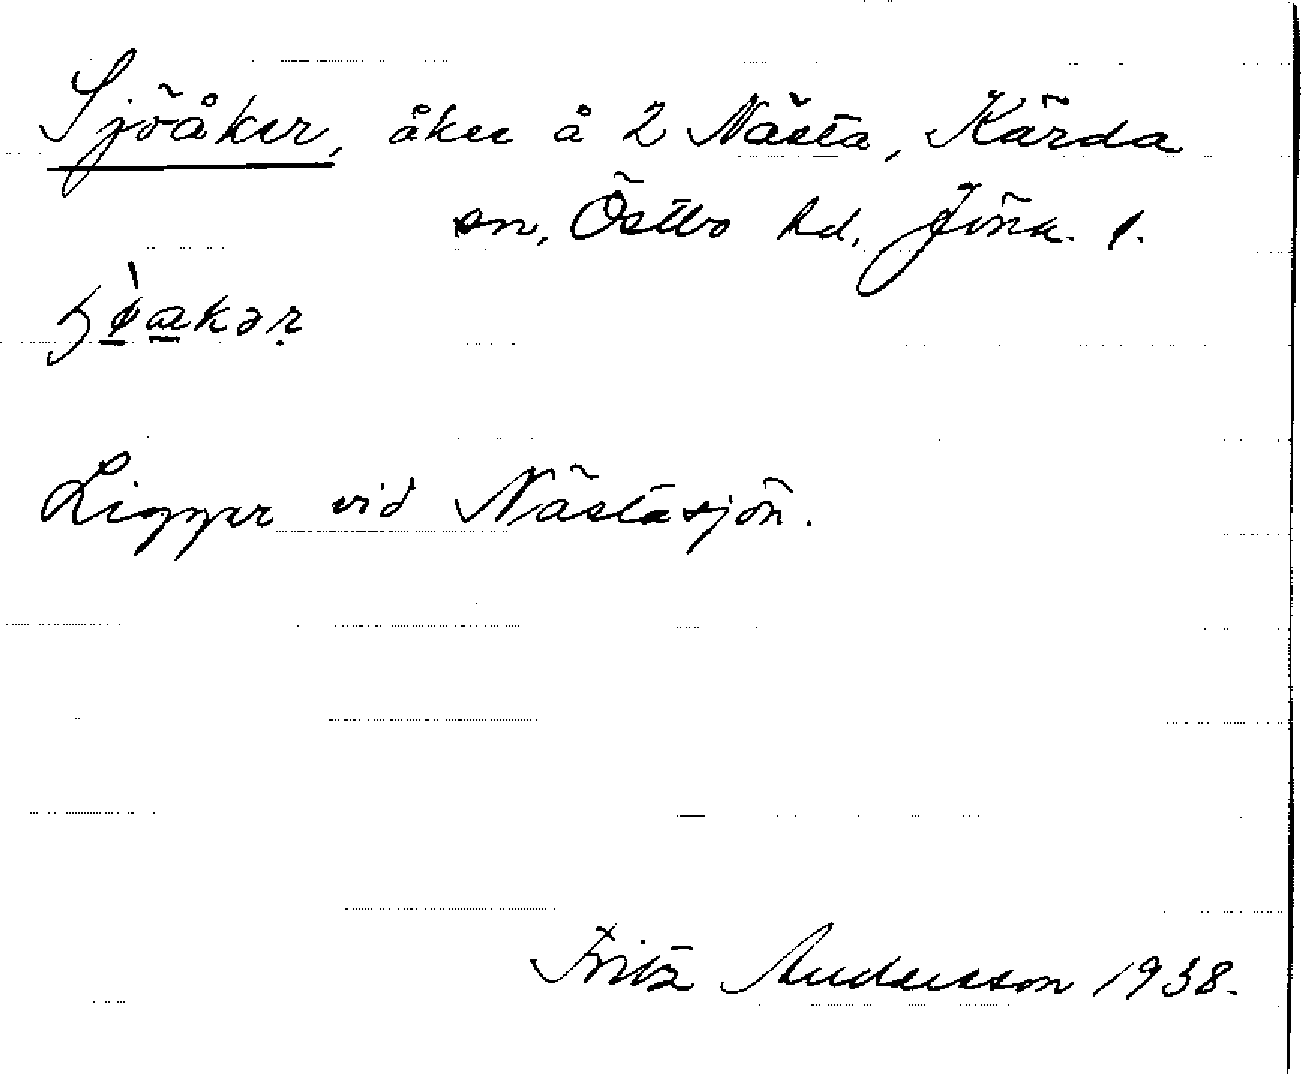 Sjöåker, åker å 2 Nästa, Kärda
sn, Östbo hd, Jönk. l.
Ligger vid Nästasjön.
Fritz Andersson 1938.